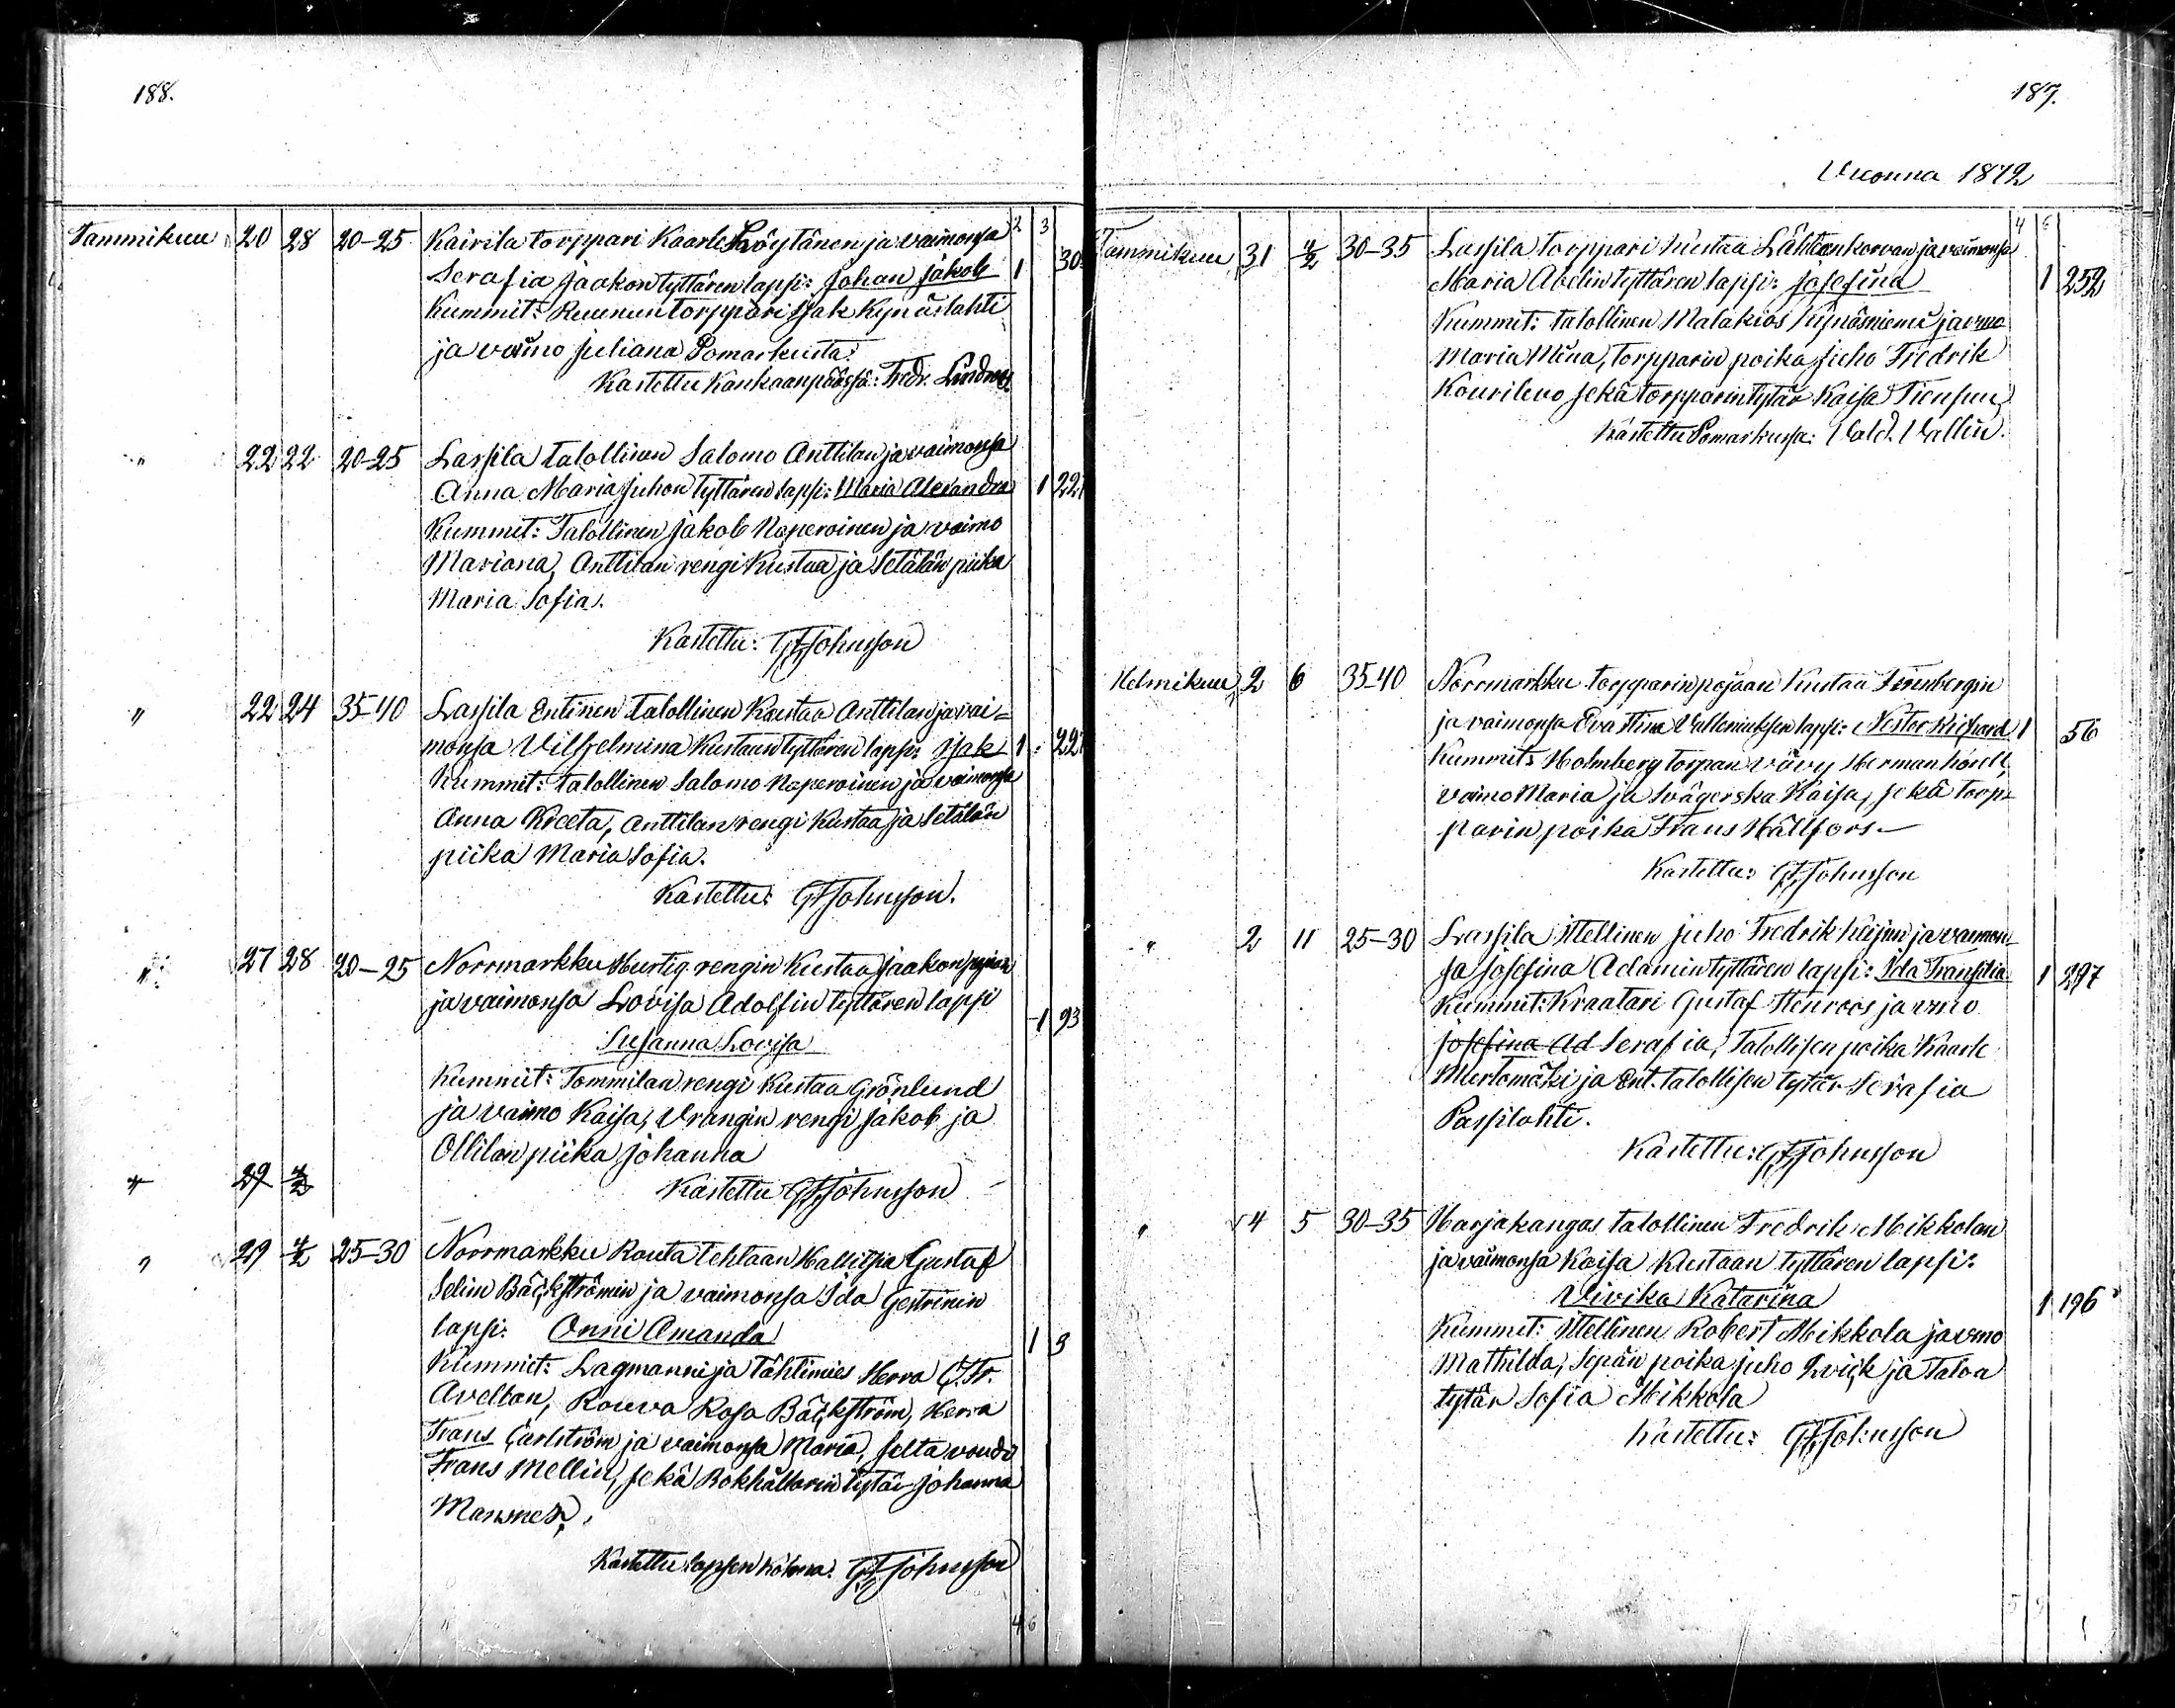 188.
Tammikuu 20 28 20-25 Kairila torppari Kaarle Löytänen ja vaimonsa 2 3
Serafia Jaakon tyttären lapsi: Johan Jakob 1 30
Kummit: Ruunun torppari Isak Kynäslahti
ja vaimo Juliana Pomarkusta.
Kastettu Kankaanpäässä: Fredr. Lindroos.
" 22 22 20-25 Lassila talollinen Salomo Anttilan ja vaimonsa
Anna Maria Juhon tyttären lapsi: Maria Alexandra 1 221
Kummit: Talollinen Jakob Naperoinen ja vaimo
Mariana, Anttilan rengi Kustaa ja Setälän piika
Maria Sofia.
Kastettu: GFJohnsson
" 22 24 35-40 Lassila Entinen talollinen Kustaa Anttilan ja vai=
monsa Vilhelmina Kustaan tyttären lapsi: Isak 1 221
Kummit: talollinen Salomo Naperoinen ja vaimonsa
Anna Kreeta, Anttilan rengi Kustaa ja Setälän
piika Maria Sofia.
Kastettu: GFJohnsson.
" 27 28 20-25 Norrmarkku Hurtig rengin Kustaa Jaakonpojan
ja vaimonsa Lovisa Adolfin tyttären lapsi
Susanna Lovisa 1 93
Kummit: Tommilan rengi Kustaa Grönlund
ja vaimo Kaisa, Vrangin rengi Jakob ja
Ollilan piika Johanna
" 29 4/2 Kastettu GFJohnsson
" 29 4/2 25-30 Norrmarkku Rauta tehtaan Hallitsia Gustaf
Selim Bäckströmin ja vaimonsa Ida Gestrinin
lapsi: Onni Amanda 1 3
Kummit: Lagmanni ja tähtimies Herra C.Fr.
Avellan, Rouva Rosa Bäckström, Herra
Frans Carlström ja vaimonsa Maria, Selta voudi
Frans Mellin, sekä Bokhållarin tytär Johanna
Kastettu lapsen kotona. GFJohnsson
4 6
187.
Vuonna 1872
Tammikuu 31 4/2 30-35 Lassila torppari Kustaa Lähteenkorvan ja vaimonsa 4 6
Maria Abelin tyttären lapsi: Josefina 1 252
Kummit: talollinen Malakias Kynäsniemi ja vmo
Maria Miina, Torpparin poika Juho Fredrik
Kourilevo sekä torpparintytär Kaisa Tiensuu
Kastettu Pomarkussa: Vald. Vallin.
Helmikuu 2 6 35-40 Norrmarkku torpparinpojaan Kustaa Stenbergin
ja vaimonsa Eva Stina Valleniuksen lapsi: Nestor Richard 1 56
Kummit: Holmberg torpan vävy Herman Kördt,
vaimo Maria ja Svägerska Kaisa, sekä torp=
parin poika Frans Hällfors.—
Kastettu: GFJohnsson
" 2 11 25-30 Lassila ittellinen Juho Fredrik Heijun ja vaimon=
sa Josefina Adamin tyttären lapsi: Ida Fransilia 1 297
Kummit: Kraatari Gustaf Stenroos ja vmo
Josefina Ad Serafia, Talollisen poika Kaarle
Murtomäki ja Ent. talollisen tytär Serafia
Passilahti.
Kastettu: GFJohnsson
" 4 5 30-35 Harjakangas talollinen Fredrik Mikkolan
ja vaimonsa Kaisa Kustaan tyttären lapsi:
Vivika Katarina 1 196
Kummit: ittellinen Robert Mikkola ja vmo
Mathilda, Sepän poika Juho Qvick ja Talon
tytär Sofia Mikkola
Kastettu: GFJohnsson
5 9